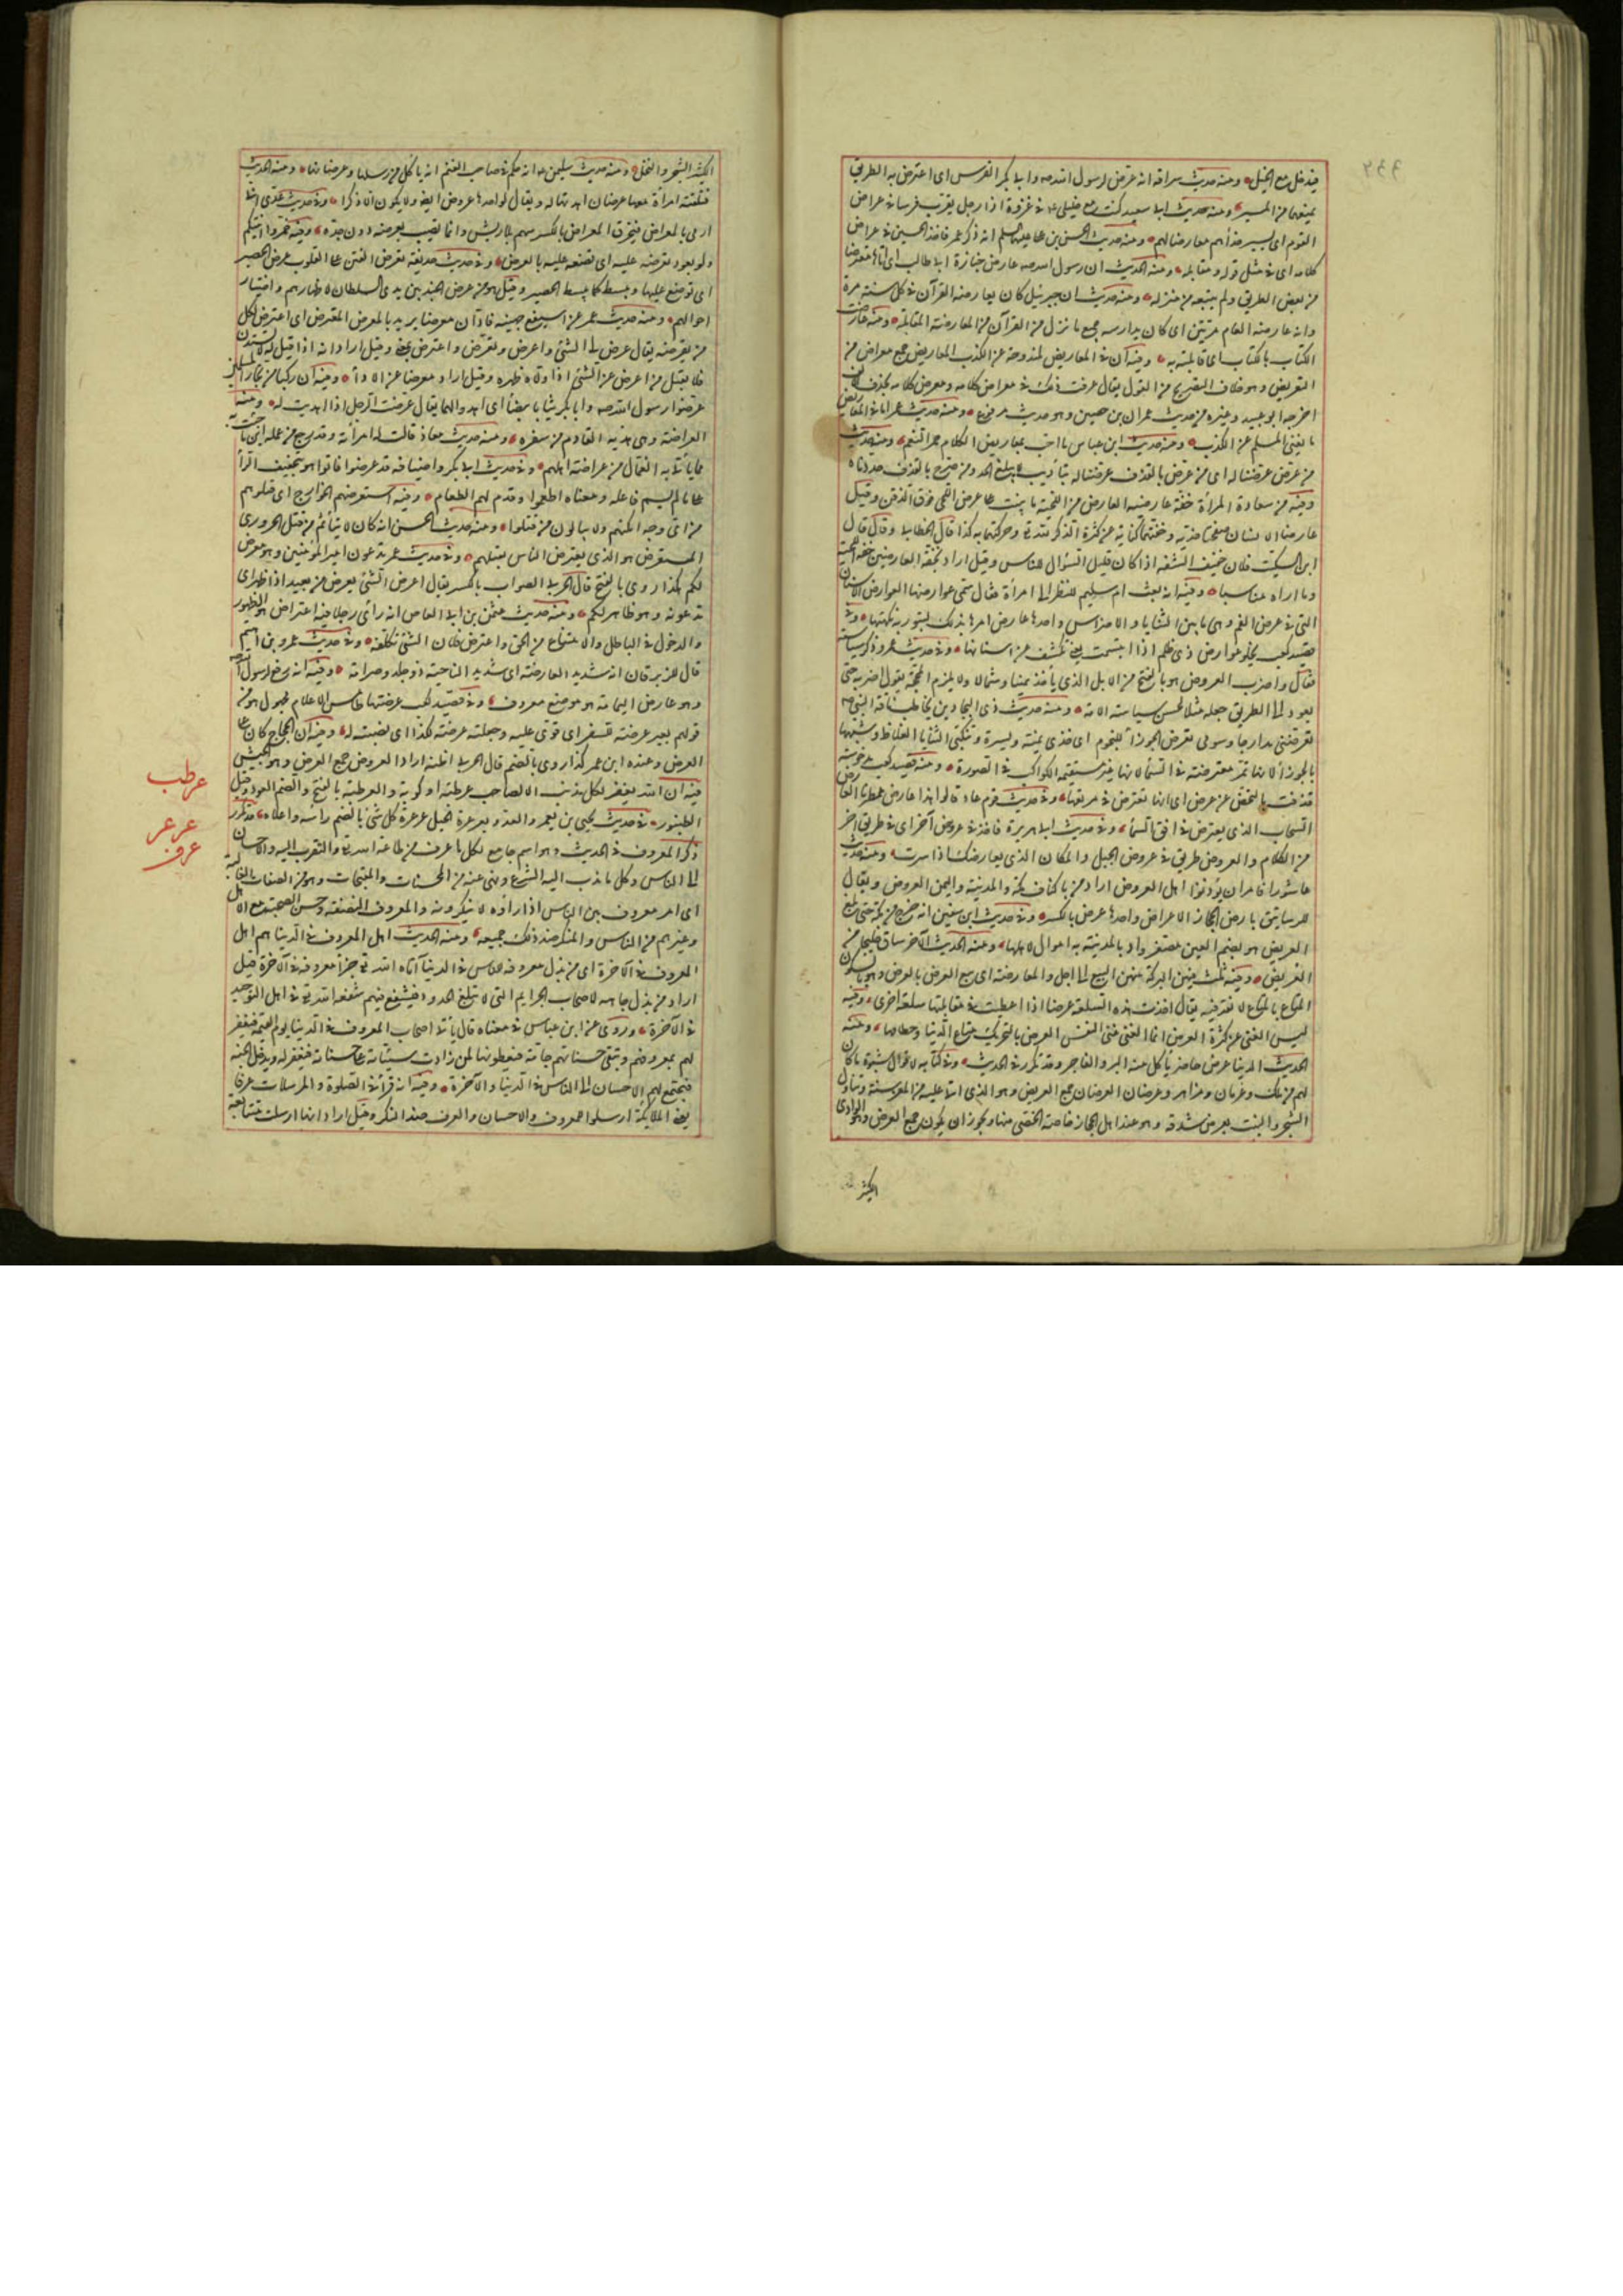 فيدخل مع الخيل ومنه حديث سراقة انه عرض لرسول الله صه وابى بكر الفرس اى اعترض به الطريق
يمنعهما من المسير ومنه حديث ابى سعيد كنت مع خليلى عم فى غزوة اذا رجل يقرب فرسا فى عراض
القوم اى يسير حذأهم معارضا لهم ومنه حديث الحسن بن على عليهما السلم انه ذكر عمر فاخذ الحسين فى عراض
كلامه اى فى مثل قوله ومقابله ومنه الحديث ان رسول الله صه عارض جنازة ابى طالب اى اتاها معترضا
من بعض الطريق ولم يتبعه من منزله ومنه حديث ان جبرئيل كان يعارضه القرآن فى كل سنة مرة
وانه عارضه العام مرتين اى كان يدارسه جميع ما نزل من القرآن من المعارضة المقابلة ومنه عارضت
الكتاب بالكتاب اى قابلته به وفيه ان فى المعاريض لمندوحة عن الكذب المعاريض جمع معراض من
التعريض وهو خلاف التصريح من القول يقال عرفت ذلك فى معراض كلامه ومعرض كلامه بحذف الالف
اخرجه ابو عبيد وغيره من حديث عمران بن حصين وهو حديث مرفوع ومنه حديث عمر اما فى المعاريض
ما يغنى المسلم عن الكذب ومنه حديث ابن عباس ما احب بمعاريض الكلام حمر النعم ومنه الحديث
من عرض عرضنا له اى من عرض بالقذف عرضنا له بتأديب لا يبلغ الحد ومن صرح بالقذف حددناه
وفيه من سعادة المرأة خفة عارضيه العارض من اللحية ما ينبت على عرض اللحى فوق الذقن وقيل
عارضا الانسان صفحتا خديه وخفتهما كناية عن كثرة الذكر لله تع وحركتهما به كذا قال الخطابى وقال قال
ابن السكيت فلان خفيف الشفة اذا كان قليل السؤال للناس وقيل اراد بخفة العارضين خفة اللحية
وما اراه مناسبا وفيه انه بعث ام سليم لتنظر الى امرأة فقال شمى عوارضها العوارض الاسنان
التى فى عرض الفم وهى ما بين الثنايا والاضراس واحدها عارض امرها بذلك لتبور به نكهتها وفى
قصيد كعب يجلو عوارض ذى ظلم اذا ابتسمت يعنى تكشف عن اسنانها وفى حديث عمر وذكر سياسته
فقال واضرب العروض هو بالفتح من الابل الذى يأخذ يمينا وشمالا ولا يلزم المحجة يقول اضربه حتى
يعود الى الطريق جعله مثلا لحسن سياسته الامة ومنه حديث ذى البجادين يخاطب ناقة النبى صه
تعرضى مدارجا وسومى تعرض الجوزأ للنجوم اى خذى يمنة ويسرة وتنكبى الثنايا الغلاظ وشبهها
بالجوزأ لانها تمر معترضة فى السمأ لانها غير مستقيمة الكواكب فى الصورة ومنه قصيد كعب مدخوسة
قذفت بالنحض عن عرض اى انها تعترض فى مرتعها وفى حديث قوم عاد قالوا هذا عارض ممطرنا العارض
السحاب الذى يعترض فى افق السمأ وفى حديث ابى هريرة فاخذ فى عروض آخر اى فى طريق آخر
من الكلام والعروض طريق فى عروض الجبل والمكان الذى يعارضك اذا سرت ومنه حديث
عاشورا فامر ان يؤذنوا اهل العروض اراد من باكناف مكة والمدينة واليمن العروض ويقال
للرساتيق بارض الحجاز الاعراض واحدها عرض بالكسر وفى حديث ابى سفين انه خرج من مكة حتى بلغ
العريض هو بضم العين مصغر واد بالمدينة به اموال لاهلها ومنه الحديث الآخر ساق خليجا من
العريض وفيه ثلث فيهن البركة منهن البيع الى اجل والمعارضة اى بيع العرض بالعرض وهو بالسكون
المتاع بالمتاع لا نقد فيه يقال اخذت هذه السلعة عرضا اذا اعطيت فى مقابلتها سلعة اخرى وفيه
ليس الغنى عن كثرة العرض انما الغنى غنى النفس العرض بالتحريك متاع الدنيا وحطامها ومنه
الحديث الدنيا عرض حاضر يأكل منه البر والفاجر وقد تكرر فى الحديث وفى كتابه لاقوال شبوة ما كان
لهم من ملك وعرمان ومزاهر وعرضان العرضان جمع العريض وهو الذى اتى عليه من المعز سنة وتناول
الشجر والنبت بعرض شدقه وهو عند اهل الحجاز خاصة الخصى منها ويجوز ان يكون جمع العرض وهو الوادى
الكثير
الكثير الشجر والنخل ومنه حديث سليمن عم انه حكم فى صاحب الغنم انه يأكل من رسلها وعرضانها ومنه الحديث
فتلقته امرأة معها عرضان اهدتهما له ويقال لواحدها عروض ايضا ولا يكون الا ذكرا وفى حديث عدى انى
ارمى بالمعراض فيخزق المعراض بالكسر سهم بلا ريش وانما يصيب بعرضه دون حده وفيه خمروا آنيتكم
ولو بعود تعرضه عليه اى تضعه عليه بالعرض وفى حديث حذيفة تعرض الفتن على القلوب عرض الحصير
اى توضع عليها وتبسط كما يبسط الحصير وقيل هو من عرض الجند بين يدى السلطان لاظهارهم واختبار
احوالهم ومنه حديث عمر عن اسيفع جهينة فادان معرضا يريد بالمعرض المعترض اى اعترض لكل
من يقرضه يقال عرض لى الشئ واعرض وتعرض واعترض بمعنى وقيل اراد انه اذا قيل له لا تستدن
فلا يقبل من اعرض عن الشئ اذا ولاه ظهره وقيل اراد معرضا عن الادأ وفيه ان ركبا من تجار المسلمين
عرضوا رسول الله صه وابا بكر ثيابا بيضا اى اهدوا لهما يقال عرضت الرجل اذا اهديت له ومنه
العراضة وهى هدية القادم من سفره ومنه حديث معاذ قالت له امرأته وقد رجع من عمله اين ما جئت به
مما يأتى به العمال من عراضة اهلهم وفى حديث ابى بكر واضيافه قد عرضوا فابوا هو بتخفيف الرأ
على ما لم يسم فاعله ومعناه اطعموا وقدم لهم الطعام وفيه استعرضهم الخوارج اى قتلوهم
من اى وجه امكنهم ولا يبالون من قتلوا ومنه حديث الحسن انه كان لا يتأثم من قتل الحرورى
المستعرض هو الذى يعترض الناس بقتلهم وفى حديث عمر تدعون امير المؤمنين وهو معرض
لكم هكذا روى بالفتح قال الحربى الصواب بالكسر يقال اعرض الشئ يعرض من بعيد اذا ظهر اى
تدعونه وهو ظاهر لكم ومنه حديث عثمن بن ابى العاص انه رأى رجلا فيه اعتراض هو الظهور
والدخول فى الباطل والامتناع من الحق واعترض فلان الشئ تكلفه وفى حديث عمرو بن اهيم
قال للزبرقان انه شديد العارضة اى شديد الناحية ذو جلد وصرامة وفيه انه رفع لرسول الله صه
وهو عارض اليمامة هو موضع معروف وفى قصيد كعب عرضتها طامس الاعلام مجهول هو من
قولهم بعير عرضة للسفر اى قوى عليه وجعلته عرضة لكذا اى نصبته له وفيه ان الحجاج كان على
العرض وعنده ابن عمر كذا روى بالضم قال الحربى اظنه اراد العروض جمع العرض وهو الجيش
فيه ان الله يغفر لكل مذنب الا لصاحب عرطبة او كوبة والعرطبة بالفتح والضم العود وقيل
الطنبور فى حديث يحيى بن يعمر والعدو بعرعرة الجبل عرعرة كل شئ بالضم رأسه واعلاه قد تكرر
ذكر المعروف فى الحديث وهو اسم جامع لكل ما عرف من طاعة الله تع والتقرب اليه والاحسان
الى الناس وكل ما ندب اليه الشرع ونهى عنه من المحسنات والمقبحات وهو من الصفات الغالبة
اى امر معروف بين الناس اذا رأوه لا ينكرونه والمعروف النصفة وحسن الصحبة مع الاهل
وغيرهم من الناس والمنكر ضد ذلك جميعه ومنه الحديث اهل المعروف فى الدنيا هم اهل
المعروف فى الآخرة اى من بذل معروفه للناس فى الدنيا آتاه الله تع جزأ معروفه فى الآخرة وقيل
اراد من بذل جاهه لاصحاب الجرايم التى لا تبلغ الحدود فيشفع فيهم شفعه الله تع فى اهل التوحيد
فى الآخرة وروى عن ابن عباس فى معناه قال يأتى اصحاب المعروف فى الدنيا يوم القيمة فيغفر
لهم بمعروفهم وتبقى حسناتهم جامة فيعطونها لمن زادت سيئاته على حسناته فيغفر له ويدخل الجنة
فيجتمع لهم الاحسان الى الناس فى الدنيا والآخرة وفيه انه قرأ فى الصلوة والمرسلات عرفا
يعنى الملائكة ارسلوا للمعروف والاحسان والعرف ضد النكر وقيل اراد انها ارسلت متتابعة
عرطب
عرعر
عرف